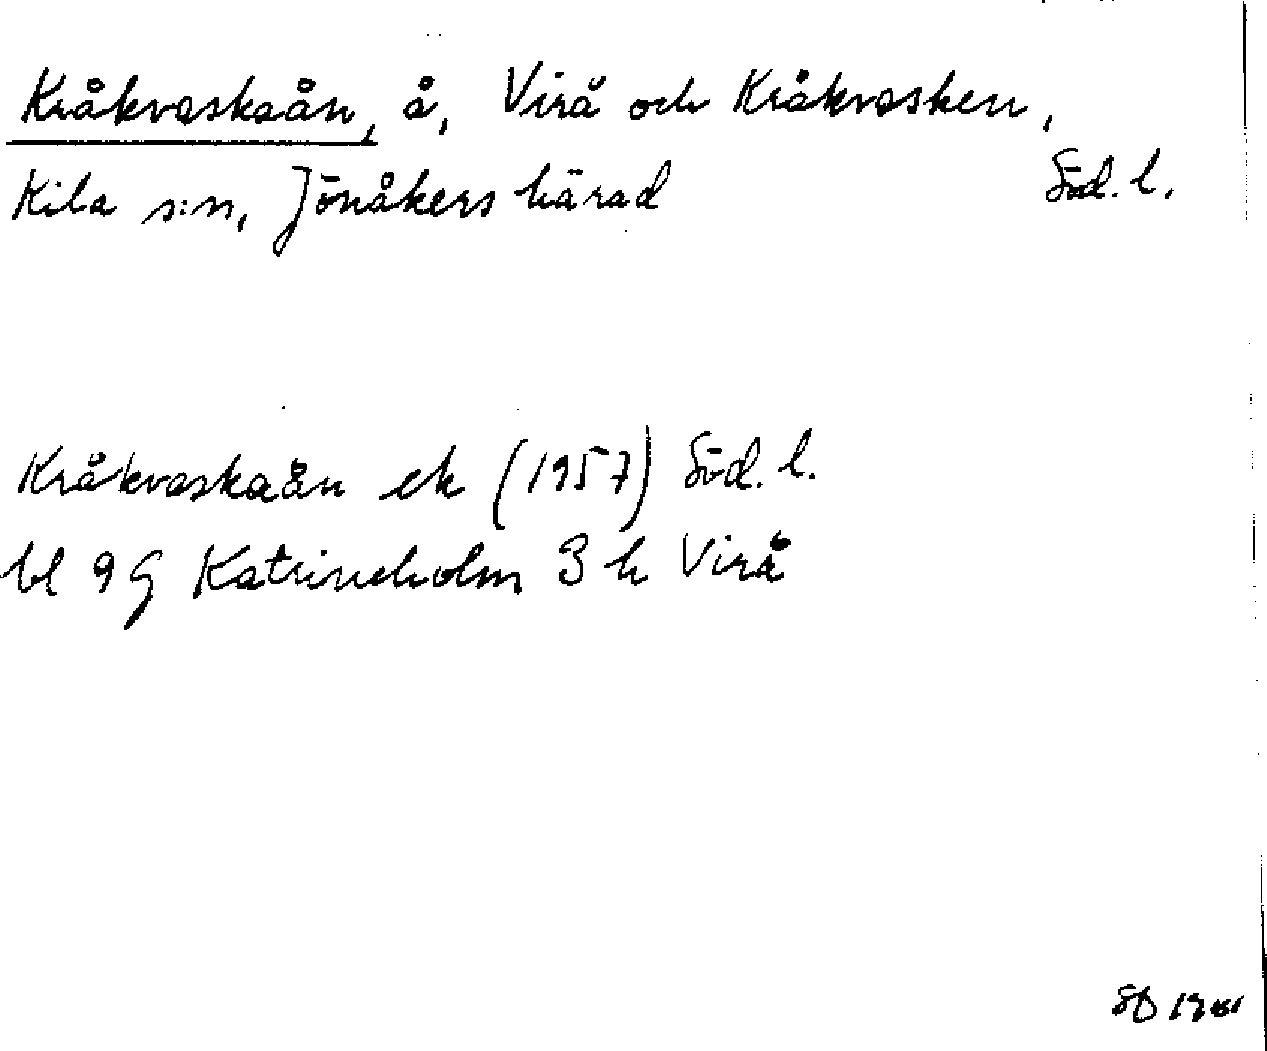 Kråkvaskaån, å, Virå och Kråkvasken,
Kila s:n, Jönåkers härad Söd. l.
Kråkvaskaån ek (1957) Söd. l.
bl 9G Katrineholm 3 h Virå